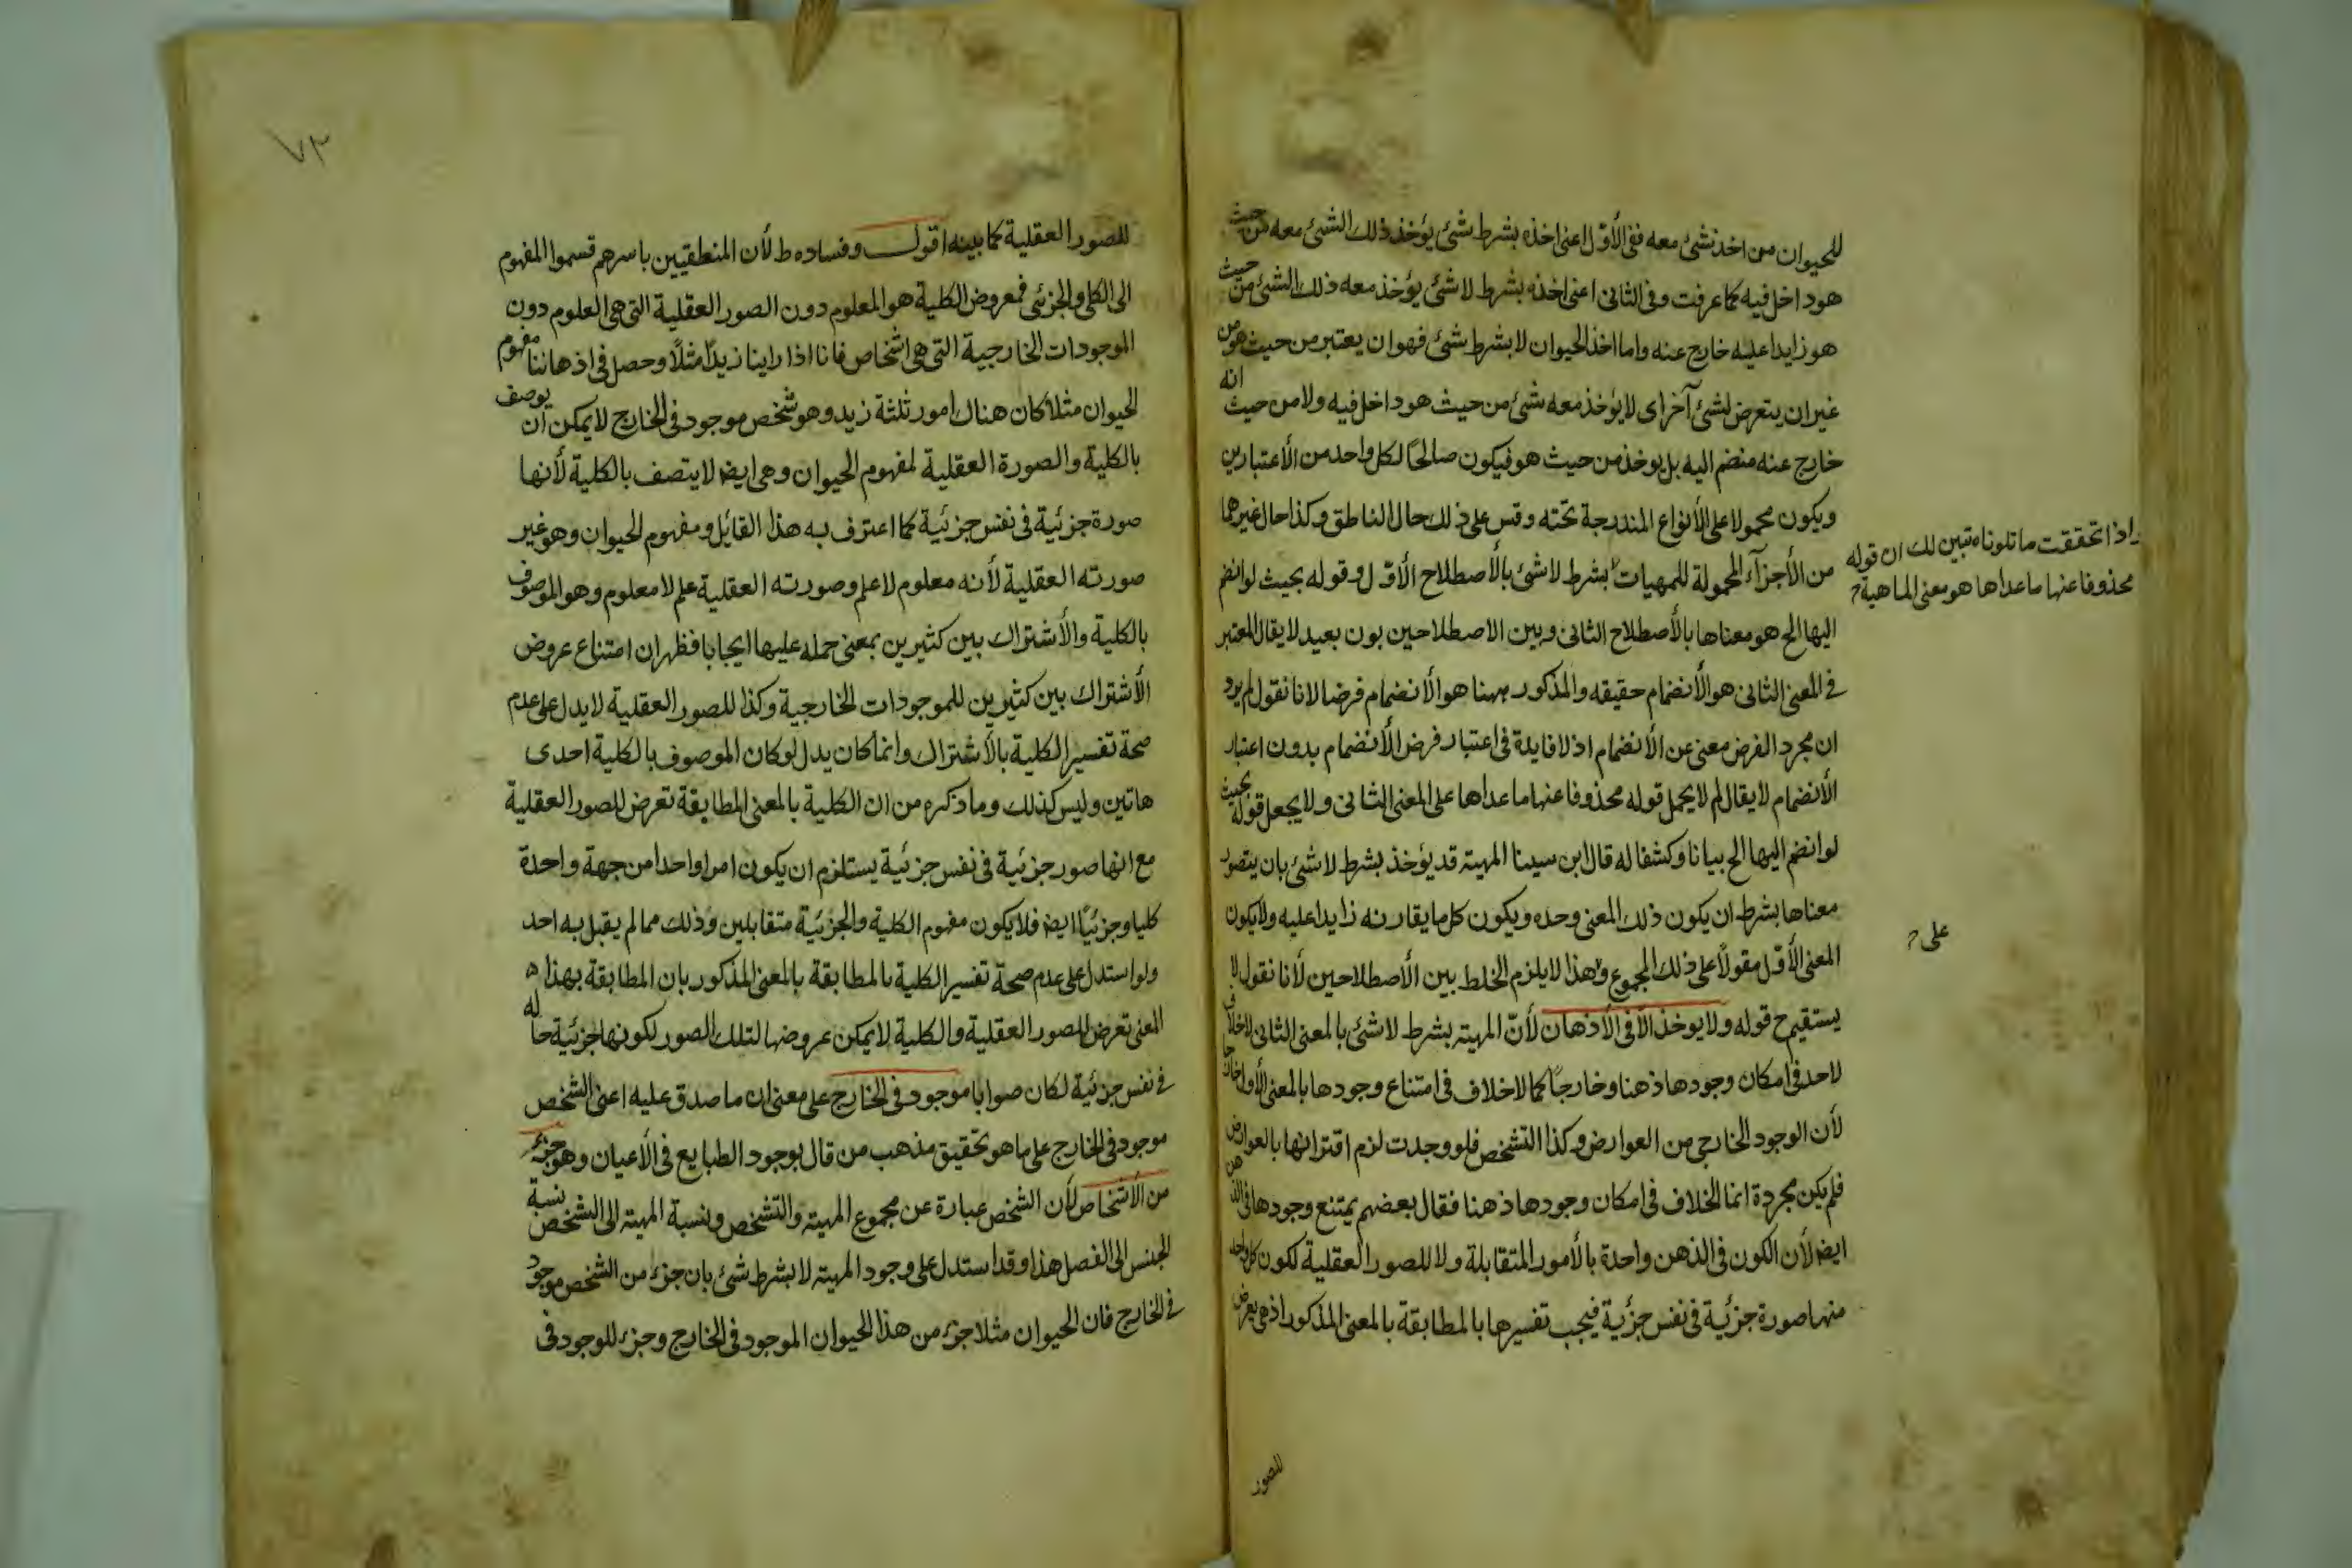 للحيوان من اخذ شئ معه ففى الأوّل اعنى اخذه بشرط شئ يؤخذ ذلك الشئ معه من حيث
هو داخل فيه كما عرفت وفى الثانى اعنى اخذه بشرط لا شئ يؤخذ معه ذلك الشئ من حيث
هو زايدا عليه خارج عنه واما اخذ الحيوان لا بشرط شئ فهو ان يعتبر من حيث هو من
غير ان يتعرض لشئ آخر اى لا يؤخذ معه شئ من حيث هو داخل فيه ولا من حيث انه
خارج عنه منضم اليه بل يوخذ من حيث هو فيكون صالحًا لكل واحد من الأعتبارين
ويكون محمولا على الأنواع المندرجة تحته وقس على ذلك حال الناطق وكذا حال غيرهما
من الأجزآء المحمولة للمهيات بشرط لا شئ بالأصطلاح الأوّل وقوله بحيث لو انضم
واذا تحققت ما تلوناه تبين لك ان قوله
محذوفا عنها ما عداها هو معنى الماهية
اليها الخ هو معناها بالأصطلاح الثانى وبين الاصطلاحين بون بعيد لا يقال المعتبر
فى المعنى الثانى هو الأنضمام حقيقه والمذكور ههنا هو الأنضمام فرضا لانا نقول لم يرد
ان مجرد الفرض معنى عن الأنضمام اذ لا فايدة فى اعتبار فرض الأنضمام بدون اعتبار
الأنضمام لا يقال لم لا يحمل قوله محذوفا عنها ما عداها على المعنى الثانى ولا يجعل قوله بحيث
لو انضم اليها الخ بيانا وكشفا له قال ابن سينا المهية قد يؤخذ بشرط لا شئ بان يتصور
معناها بشرط ان يكون ذلك المعنى وحده ويكون كل ما يقارنه زايدا عليه ولا يكون
المعنى الأوّل مقولًا على ذلك المجموع وهذا لا يلزم الخلط بين الأصطلاحين لأنا نقول لا
على
يستقيم ح قوله ولا يوخذ الا فى الأذهان لأنّ المهية بشرط لا شئ بالمعنى الثانى لا خلاف
لاحد فى امكان وجودها ذهنا وخارجًا كما لا خلاف فى امتناع وجودها بالمعنى الأول خارجا
لأن الوجود الخارجى من العوارض وكذا التشخص فلو وجدت لزم اقترانها بالعوارض
فلم يكن مجردة انما الخلاف فى امكان وجودها ذهنا فقال بعضهم يمتنع وجودها فى الذهن
ايضا لأن الكون فى الذهن واحدة بالأمور المتقابلة ولا للصور العقلية لكون كل واحد
منها صورة جزئية فى نفس جزئية فيجب تفسيرها بالمطابقة بالمعنى المذكور اذ هى يعرض
للصور
٧٣
للصور العقلية كما بينه اقول وفساده ظ لأن المنطقيين باسرهم قسموا المفهوم
الى الكلى والجزئى فمعروض الكلية هو المعلوم دون الصور العقلية التى هى العلوم دون
الموجودات الخارجية التى هى اشخاص فانا اذا راينا زيدًا مثلًا وحصل فى اذهاننا مفهوم
الحيوان مثلا كان هناك امور ثلثة زيد وهو شخص موجود فى الخارج لا يمكن ان يوصف
بالكلية والصورة العقلية لمفهوم الحيوان وهى ايضا لا يتصف بالكلية لأنها
صورة جزئية فى نفس جزئية كما اعترف به هذا القايل ومفهوم الحيوان وهو غير
صورته العقلية لأنه معلوم لا علم وصورته العقلية علم لا معلوم وهو الموصوف
بالكلية والأشتراك بين كثيرين بمعنى حمله عليها ايجابا فظهر ان امتناع عروض
الأشتراك بين كثيرين للموجودات الخارجية وكذا للصور العقلية لا يدل على عدم
صحة تفسير الكلية بالأشتراك وانما كان يدل لو كان الموصوف بالكلية احدى
هاتين وليس كذلك وما ذكره من ان الكلية بالمعنى المطابقة تعرض للصور العقلية
مع انها صور جزئية فى نفس جزئية يستلزم ان يكون امرا واحدا من جهة واحدة
كليا وجزئيًا ايضا فلا يكون مفهوم الكلية والجزئية متقابلين وذلك مما لم يقبل به احد
ولو استدل على عدم صحة تفسير الكلية بالمطابقة بالمعنى المذكور بان المطابقة بهذا
المعنى تعرض للصور العقلية والكلية لا يمكن عروضها لتلك الصور لكونها جزئية حالة
فى نفس جزئية لكان صوابا موجود فى الخارج على معنى ان ما صدق عليه اعنى الشخص
موجود فى الخارج على ما هو تحقيق مذهب من قال بوجود الطبايع فى الأعيان وهو جزء
من الأشخاص لأن الشخص عبارة عن مجموع المهية والتشخص ونسبة المهية الى الشخص نسبة
الجنس الى الفصل هذا وقد استدل على وجود المهية لا بشرط شئ بان جزء من الشخص موجود
فى الخارج فان الحيوان مثلا جزء من هذا الحيوان الموجود فى الخارج وجزء للوجود فى